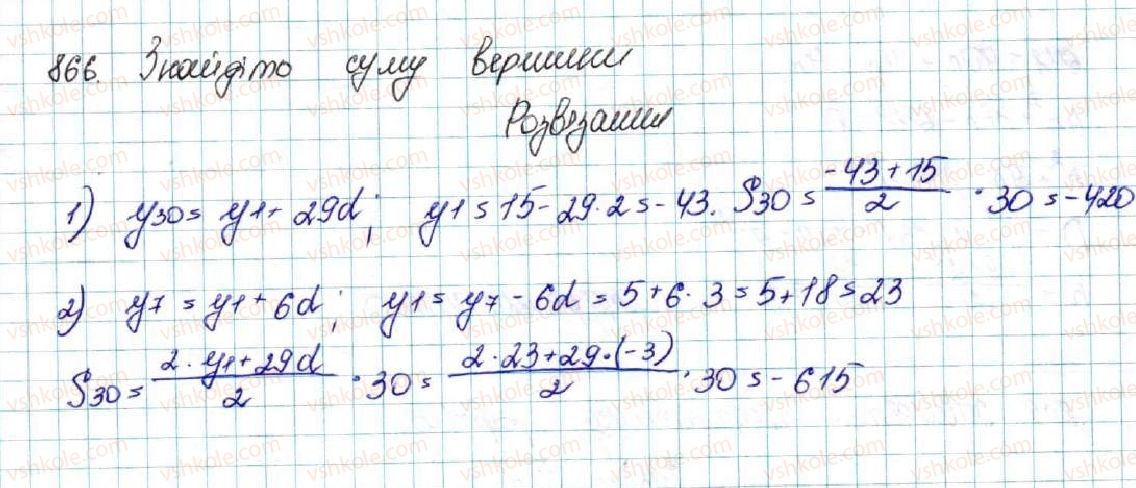 866. Знайдіто суму вершини
Розв'язання
1) y30 = y1 + 29d; y1 = 15 - 29·2 = -43. S30 = (-43+15)/2 · 30 = -420
2) y7 = y1 + 6d; y1 = y7 - 6d = 5+6·3 = 5+18 = 23
S30 = (2·y1+29d)/2 · 30 = (2·23+29·(-3))/2 · 30 = -615
vshkole.com